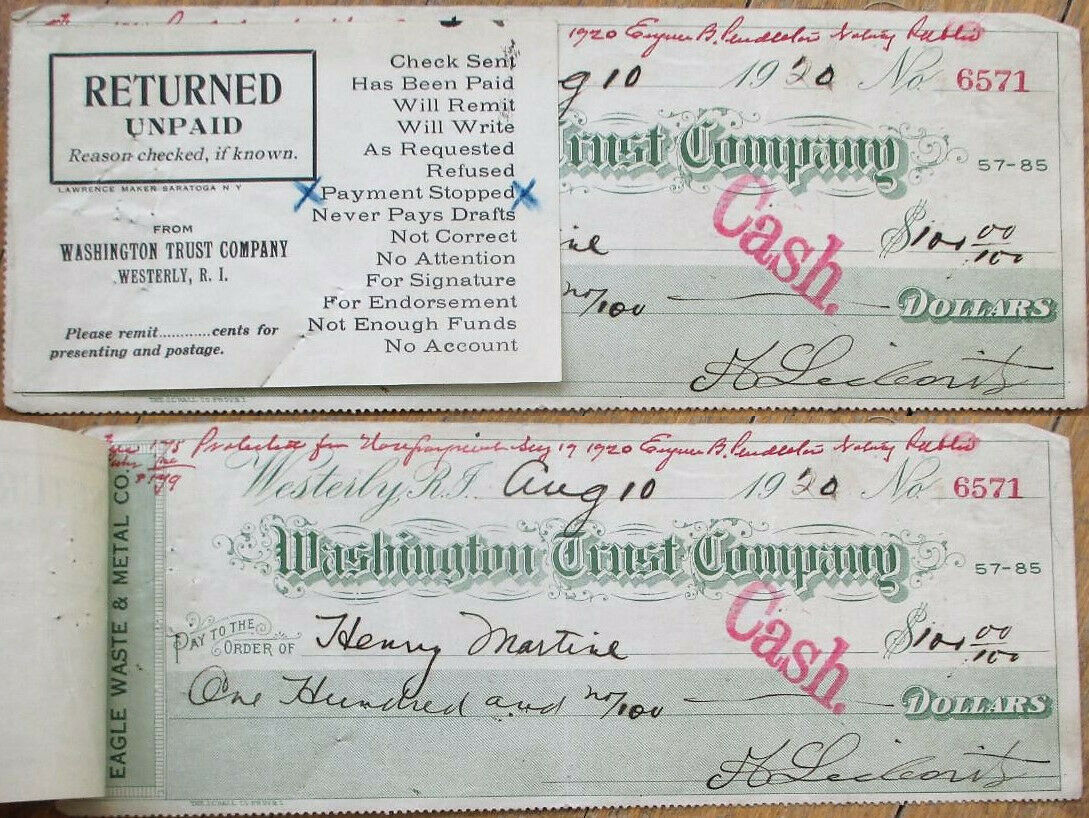 1920 Eugene B. Pendleton Notary Public
RETURNED
UNPAID
Reason checked, if known.
LAWRENCE MAKER SARATOGA N Y
FROM
WASHINGTON TRUST COMPANY
WESTERLY, R. I.
Please remit............cents for
presenting and postage.
Check Sent
Has Been Paid
Will Remit
Will Write
As Requested
Refused
X Payment Stopped X
Never Pays Drafts
Not Correct
No Attention
For Signature
For Endorsement
Not Enough Funds
No Account
g 10 1920 No. 6571
Trust Company
57-85
Cash.
$100 00/100
no/100 DOLLARS
Protested for Nonpayment Aug 17 1920 Eugene B. Pendleton Notary Public
Westerly, R.I. Aug 10 1920 No. 6571
Washington Trust Company
57-85
PAY TO THE ORDER OF Henry Martine $100 00/100
Cash.
One Hundred and no/100 DOLLARS
EAGLE WASTE & METAL CO.